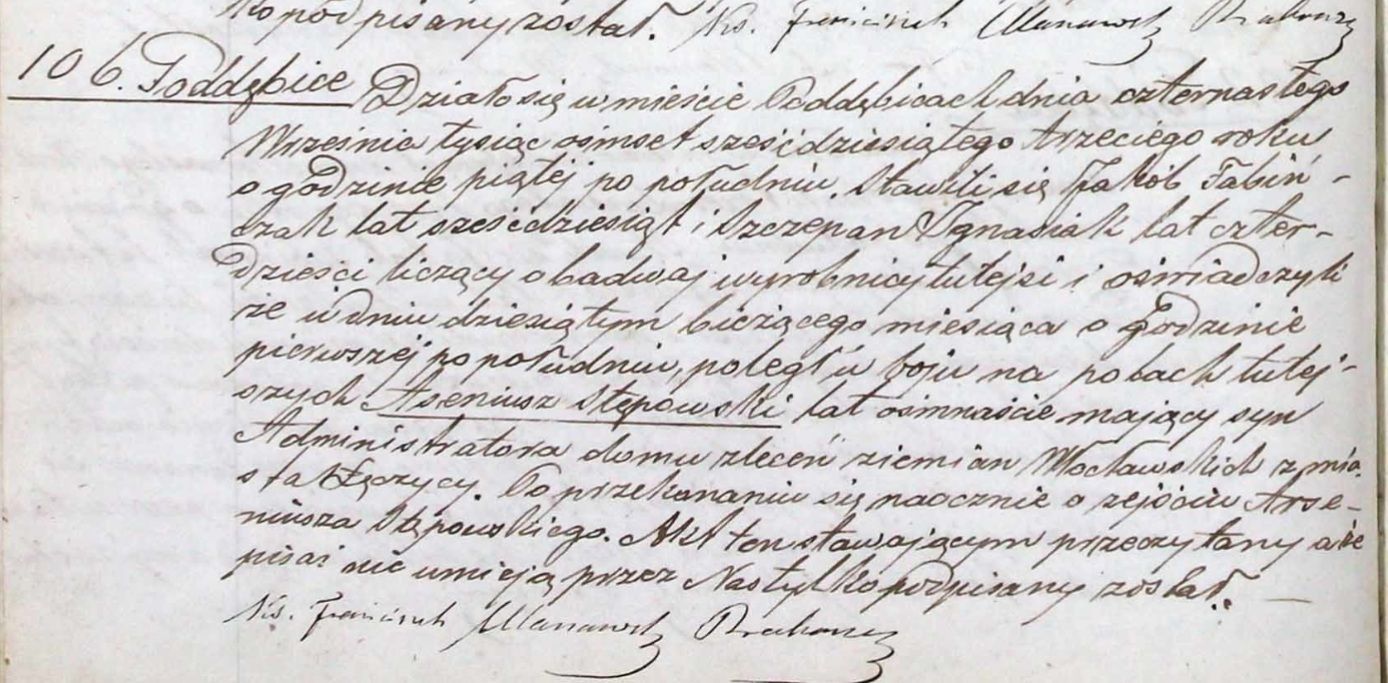 ko podpisany został. Xs. Franciszek
106. Poddębice Działo się w mieście Poddębicach dnia czternastego
Września tysiąc ośmset sześćdziesiątego trzeciego roku
o godzinie piątej po południu, stawili się Jakób Fabiń-
czak lat sześćdziesiąt i Szczepan Ignasiak lat czter-
dzieści liczący obadwaj wyrobnicy tutejsi i oświadczyli
że w dniu dziesiątym bieżącego miesiąca o godzinie
pierwszej po południu, poległ w boju na polach tutej-
szych Arseniusz Stępowski lat ośmnaście mający syn
Administratora domu zleceń ziemian Włocławskich z mia-
sta Łęczycy. Po przekonaniu się naocznie o zejściu Arse-
niusza Stępowskiego. Akt ten stawającym przeczytany a że
pisać nie umieją przez Nas tylko podpisany został.
Xs. Franciszek